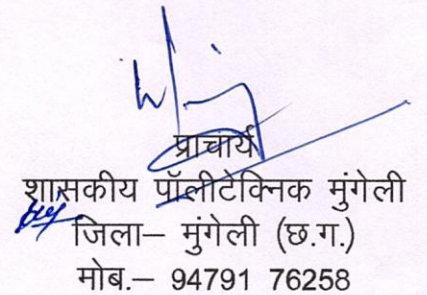 प्राचार्य
शासकीय पॉलीटेक्निक मुंगेली
जिला– मुंगेली (छ.ग.)
मोब.– 94791 76258